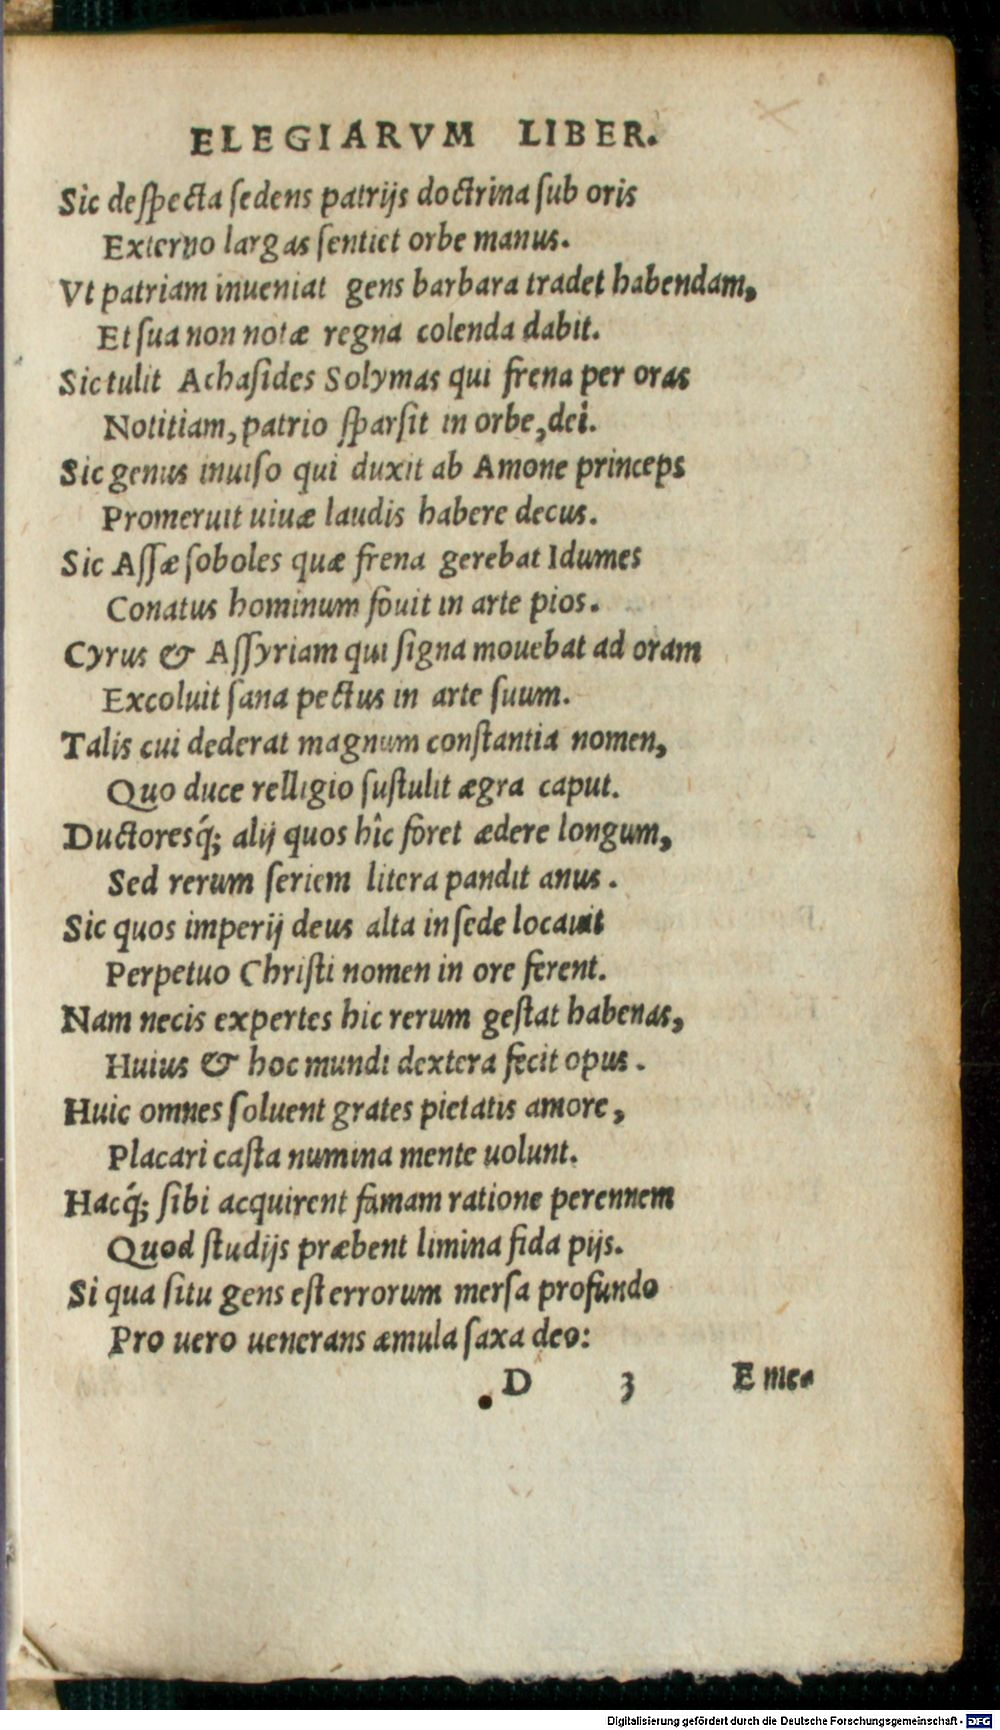 ELEGIARVM LIBER.
Sic deſpecta ſedens patrijs doctrina ſub oris
Externo largas ſentiet orbe manus.
Vt patriam inueniat gens barbara tradet habendam,
Et ſua non notæ regna colenda dabit.
Sic tulit Achaſides Solymas qui frena per oras
Notitiam, patrio ſparſit in orbe, dei.
Sic genus inuiſo qui duxit ab Amone princeps
Promeruit uiuæ laudis habere decus.
Sic Aſſæ ſoboles quæ frena gerebat Idumes
Conatus hominum fouit in arte pios.
Cyrus & Aſſyriam qui ſigna mouebat ad oram
Excoluit ſana pectus in arte ſuum.
Talis cui dederat magnum conſtantia nomen,
Quo duce relligio ſuſtulit ægra caput.
Ductoresq́; alij quos hîc foret ædere longum,
Sed rerum ſeriem litera pandit anus.
Sic quos imperij deus alta in ſede locauit
Perpetuo Chriſti nomen in ore ferent.
Nam necis expertes hic rerum geſtat habenas,
Huius & hoc mundi dextera fecit opus.
Huic omnes ſoluent grates pietatis amore,
Placari caſta numina mente uolunt.
Hacq́; ſibi acquirent famam ratione perennem
Quod ſtudijs præbent limina fida pijs.
Si qua ſitu gens eſt errorum merſa profundo
Pro uero uenerans æmula ſaxa deo:
D 3 Eme-
Digitalisierung gefördert durch die Deutsche Forschungsgemeinschaft - DFG